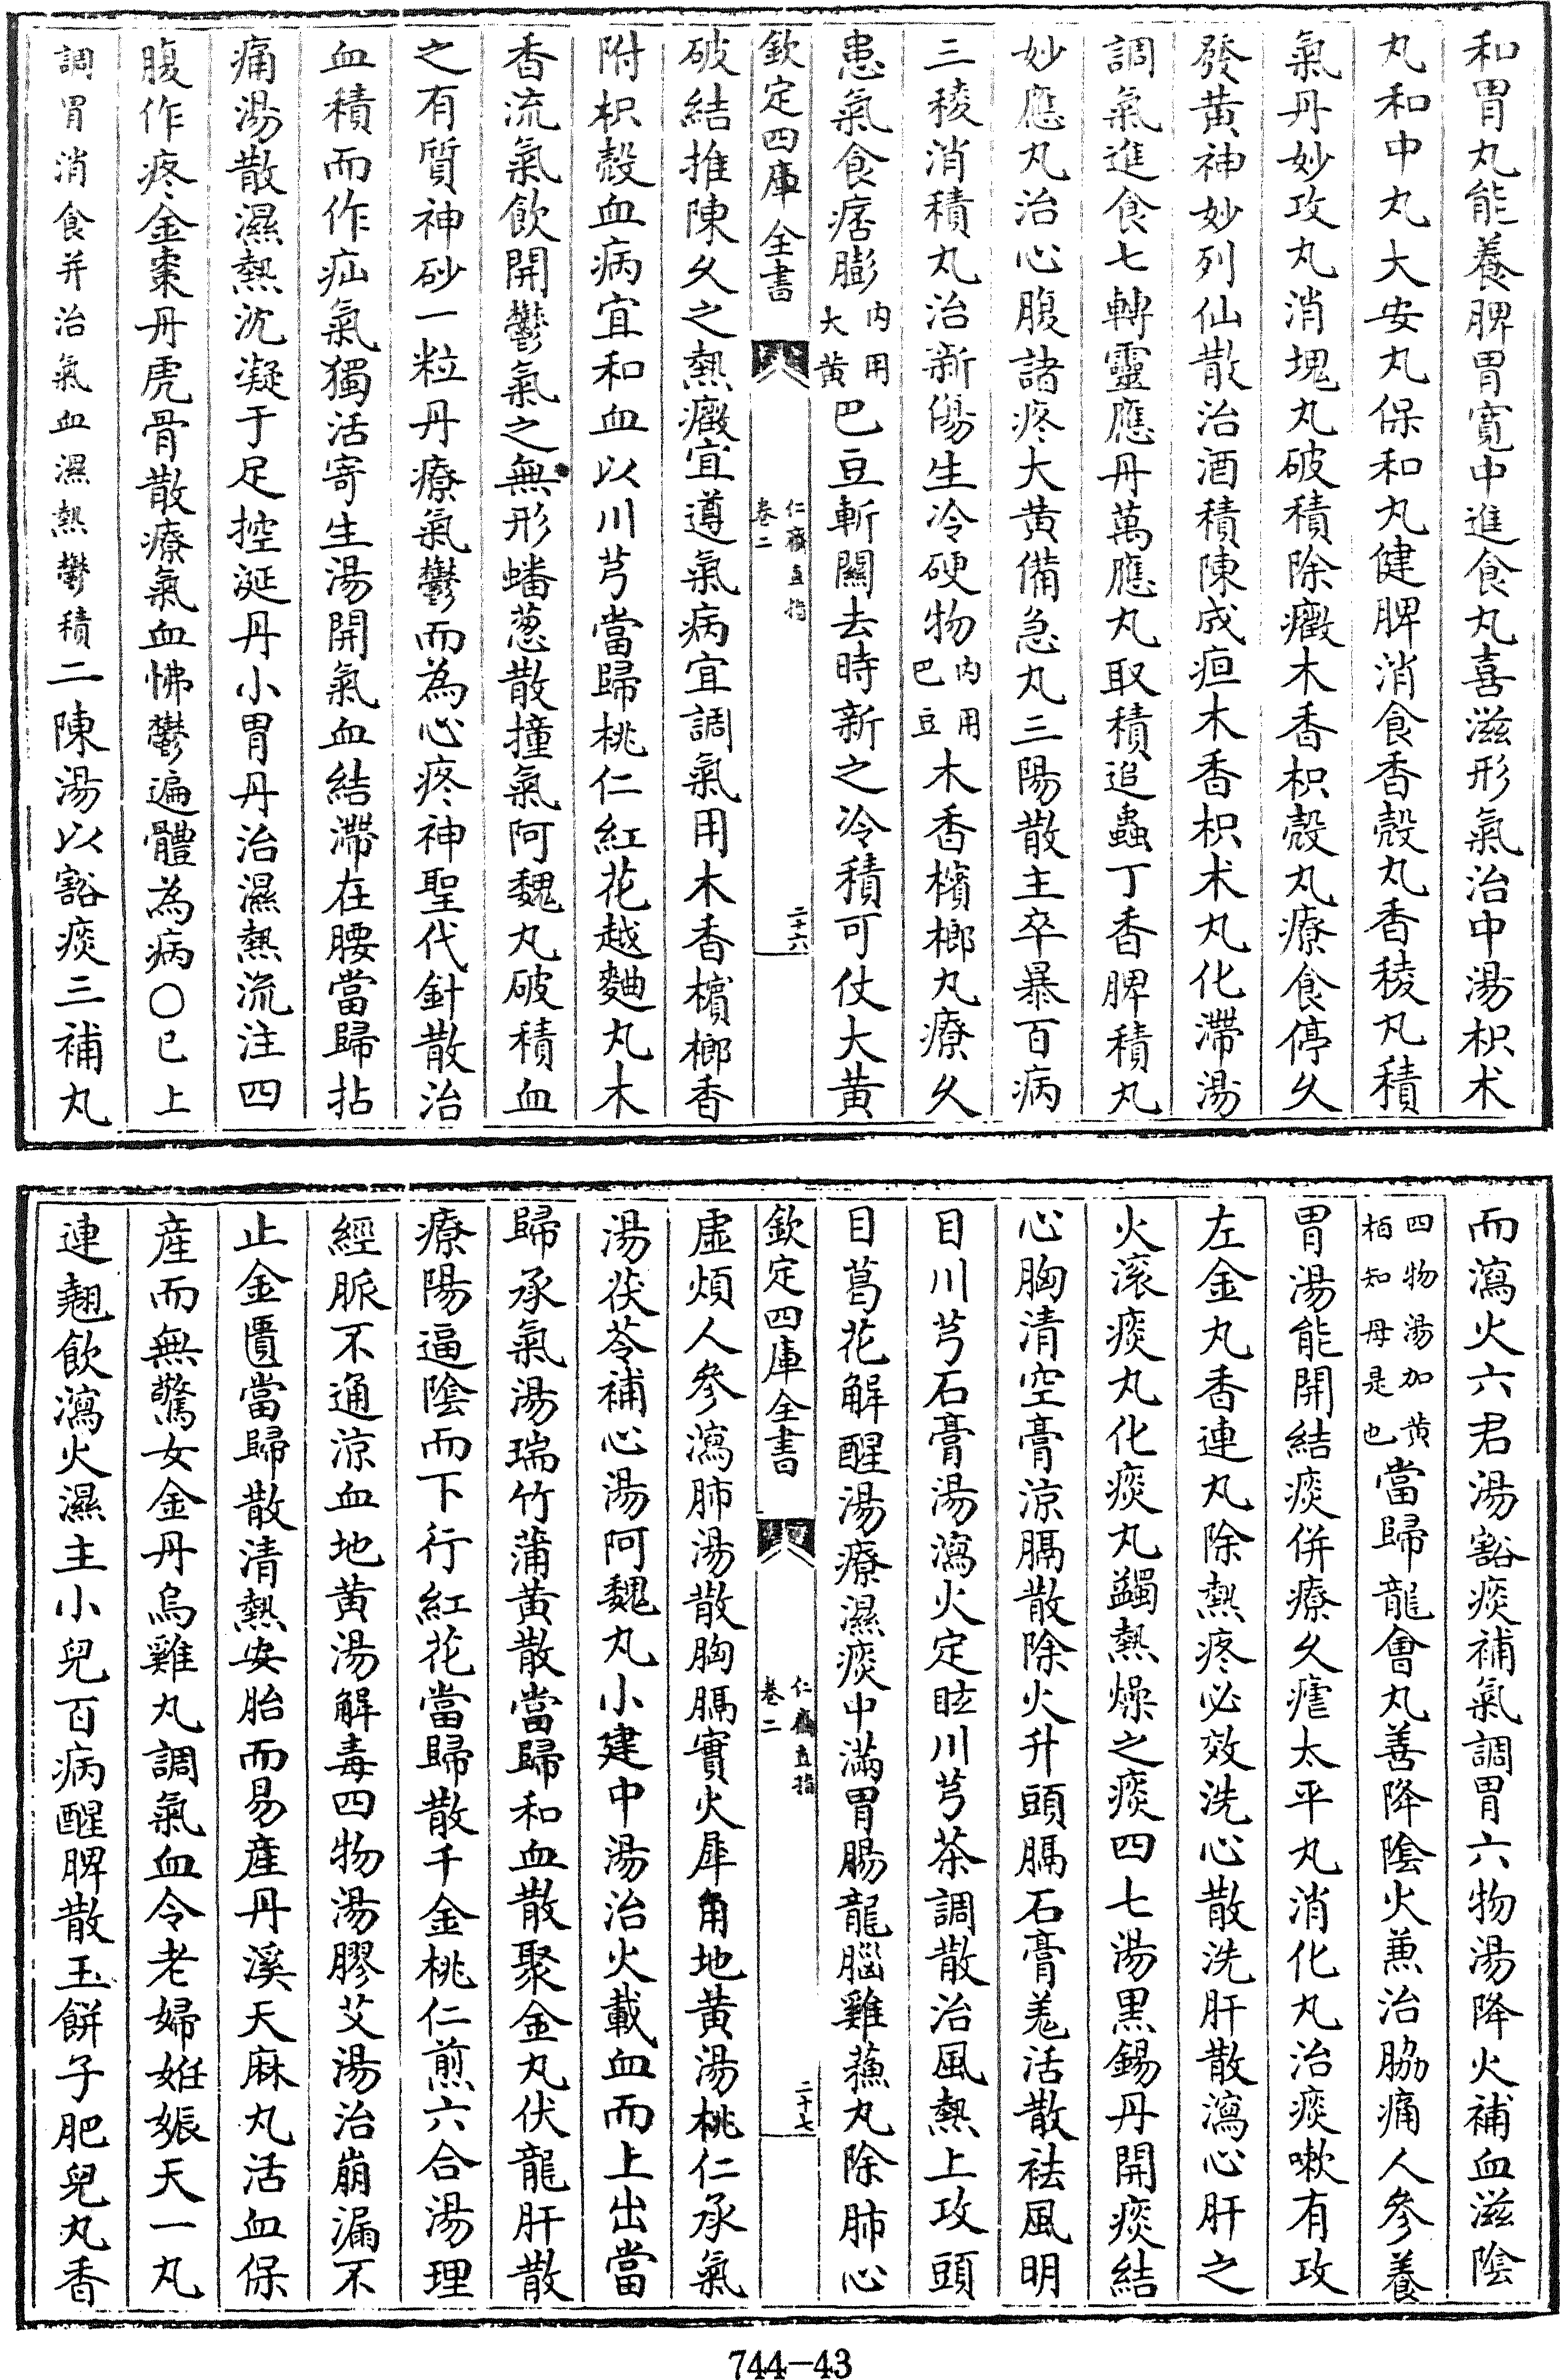 和胃丸能養脾胃寛中進食丸喜滋形氣治中湯枳术
丸和中丸大安丸保和丸健脾消食香殼丸香稜丸積
氣丹妙攻丸消塊丸破積除癥木香枳殼丸療食停久
發黄神妙列仙散治酒積陳成疸木香枳术丸化滯湯
調氣進食七轉靈應丹萬應丸取積追蟲丁香脾積丸
妙應丸治心腹諸疼大黄備急丸三陽散主卒暴百病
三稜消積丸治新傷生冷硬物内用巴豆木香檳榔丸療久
患氣食痞膨内用大黄巴豆斬關去時新之冷積可仗大黄
欽定四庫全書
仁齋直指
卷二
二十六
破結推陳久之熱癥宜遵氣病宜調氣用木香檳榔香
附枳殼血病宜和血以川芎當歸桃仁紅花越麯丸木
香流氣飲開鬱氣之無形蟠葱散撞氣阿魏丸破積血
之有質神砂一粒丹療氣鬱而為心疼神聖代針散治
血積而作疝氣獨活寄生湯開氣血結滯在腰當歸拈
痛湯散濕熱沈凝于足控涎丹小胃丹治濕熱流注四
腹作疼金棗丹虎骨散療氣血怫鬱遍體為病○已上
調胃消食并治氣血濕熱鬱積二陳湯以豁痰三補丸
而瀉火六君湯豁痰補氣調胃六物湯降火補血滋陰
四物湯加黄栢知母是也當歸龍會丸善降陰火兼治脇痛人參養
胃湯能開結痰併療久瘧太平丸消化丸治痰嗽有攻
左金丸香連丸除熱疼必效洗心散洗肝散瀉心肝之
火滚痰丸化痰丸蠲熱燥之痰四七湯黒錫丹開痰結
心胸清空膏涼膈散除火升頭膈石膏羗活散祛風明
目川芎石膏湯瀉火定眩川芎茶調散治風熱上攻頭
目葛花解醒湯療濕痰中滿胃腸龍腦雞蘓丸除肺心
欽定四庫全書
仁齋直指
卷二
二十七
虚煩人參瀉肺湯散胸膈實火犀角地黄湯桃仁承氣
湯茯苓補心湯阿魏丸小建中湯治火載血而上出當
歸承氣湯瑞竹蒲黄散當歸和血散聚金丸伏龍肝散
療陽逼陰而下行紅花當歸散千金桃仁煎六合湯理
經脈不通涼血地黄湯解毒四物湯膠艾湯治崩漏不
止金匱當歸散清熱安胎而易產丹溪天麻丸活血保
產而無驚女金丹烏雞丸調氣血令老婦姙娠天一丸
連翹飲瀉火濕主小兒百病醒脾散玉餅子肥兒丸香
744-43